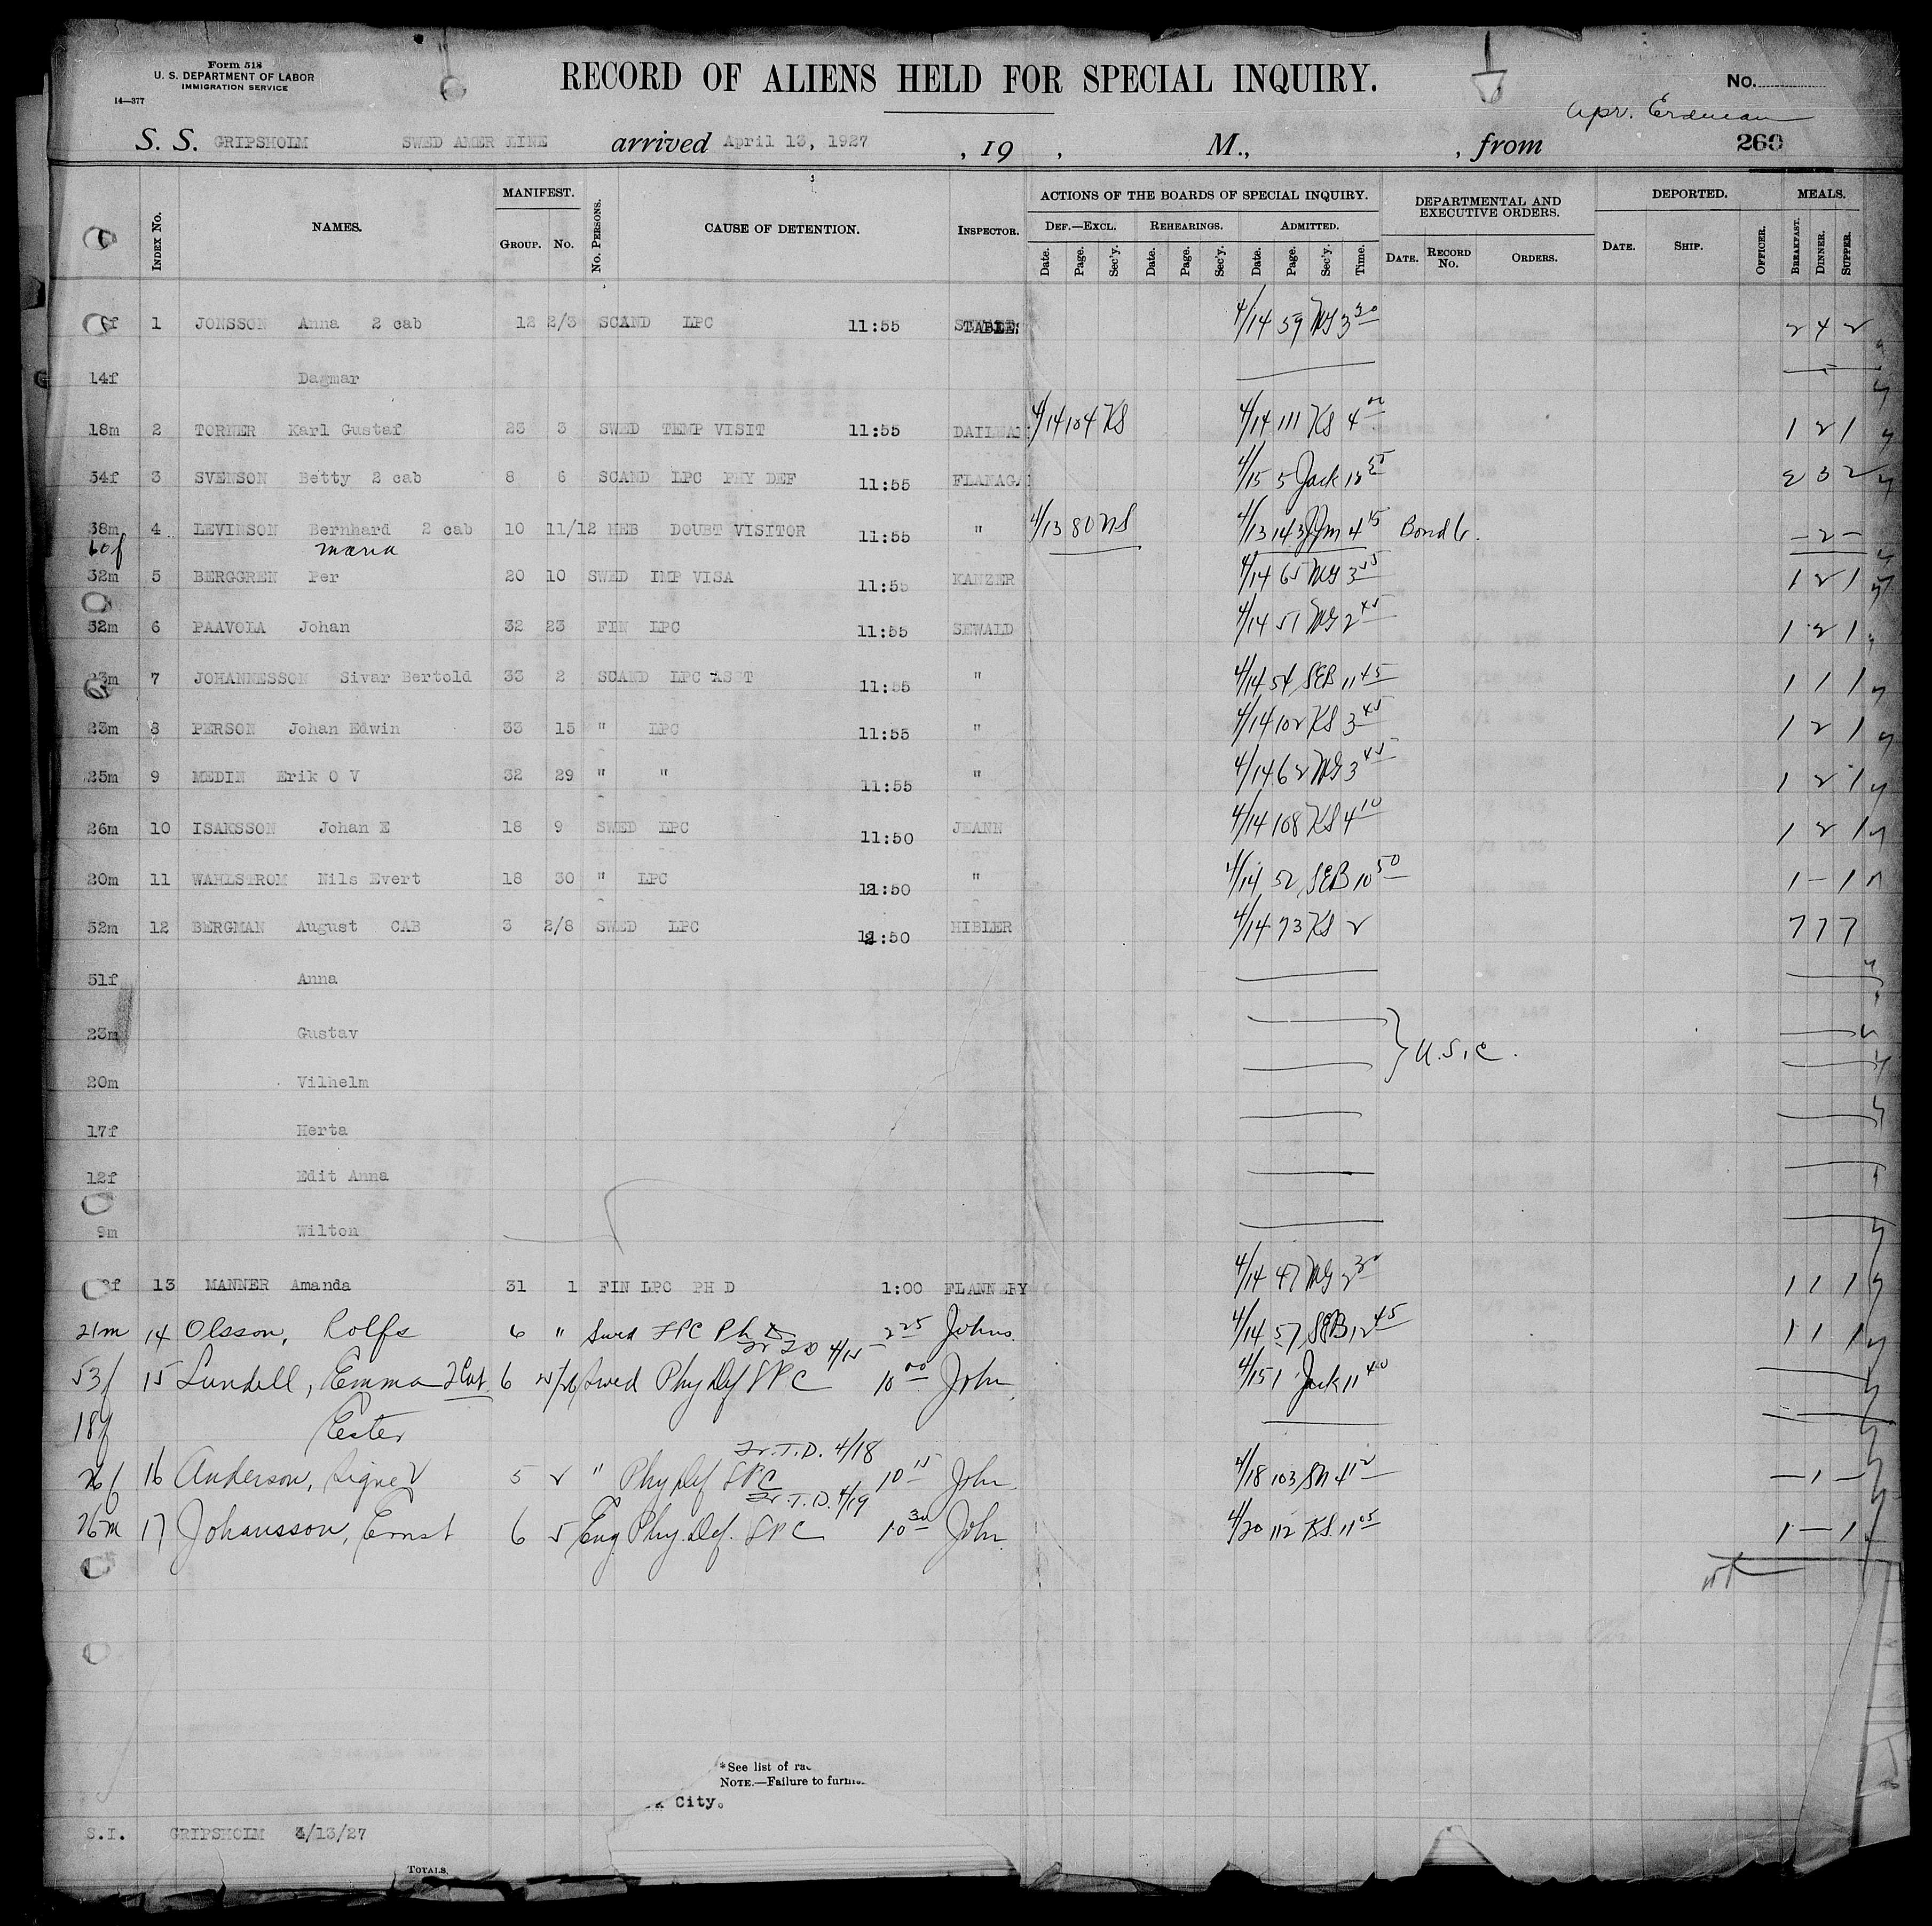 Form 518
U. S. DEPARTMENT OF LABOR
IMMIGRATION SERVICE
14—377
RECORD OF ALIENS HELD FOR SPECIAL INQUIRY.
No.
Apr. Erdman
S. S. GRIPSHOLM SWED AMER LINE arrived April 13, 1927 , 19 , M., , from 260
INDEX NO. NAMES. MANIFEST. GROUP. NO. NO. PERSONS. CAUSE OF DETENTION. INSPECTOR. ACTIONS OF THE BOARDS OF SPECIAL INQUIRY. DEF.—EXCL. Date. Page. Sec'y. REHEARINGS. Date. Page. Sec'y. ADMITTED. Date. Page. Sec'y. Time. DEPARTMENTAL AND EXECUTIVE ORDERS. DATE. RECORD NO. ORDERS. DEPORTED. DATE. SHIP. OFFICER. MEALS. BREAKFAST. DINNER. SUPPER.
f 1 JONSSON Anna 2 cab 12 2/3 SCAND LPC 11:55 4/14 59 MG 3 30 2 4 2
14f Dagmar
18m 2 TORNER Karl Gustaf 23 3 SWED TEMP VISIT 11:55 4/14 104 KS 4/14 111 KS 4 1 2 1
54f 3 SVENSON Betty 2 cab 8 6 SCAND LPC PHY DEF 11:55 FLANAGA 4/15 5 Jack 2 3 2
38m 4 LEVINSON Bernhard 2 cab 10 11/12 HEB DOUBT VISITOR 11:55 " 4/13 80 NS 4/13 143 JJM 4 15 Bond 6. - 2 -
60f maria
32m 5 BERGGREN Per 20 10 SWED IMP VISA 11:55 KANZER 4/14 65 MG 3 55 1 2 1
32m 6 PAAVOLA Johan 32 23 FIN LPC 11:55 SEWALD 4/14 51 MG 2 45 1 2 1
23m 7 JOHANNESSON Sivar Bertold 33 2 SCAND LPC ASST 11:55 " 4/14 54 SEB 11 45 1 1 1
23m 8 PERSON Johan Edwin 33 15 " LPC 11:55 " 4/14 102 KS 3 45 1 2 1
25m 9 MEDIN Erik O V 32 29 " " 11:55 " 4/14 62 MG 3 45 1 2 1
26m 10 ISAKSSON Johan E 18 9 SWED LPC 11:50 JEANN 4/14 108 KS 4 10 1 2 1
20m 11 WAHLSTROM Nils Evert 18 30 " LPC :50 " 4/14 52 SEB 10 50 1 - 1
52m 12 BERGMAN August CAB 3 2/8 SWED LPC :50 HIBLER 4/14 73 KS 2 7 7 7
51f Anna
23m Gustav
} U.S.C.
20m Vilhelm
17f Herta
12f Edit Anna
9m Wilton
f 13 MANNER Amanda 31 1 FIN LPC PH D 1:00 FLANNERY 4/14 47 MG 2 30 1 1 1
21m 14 Olsson, Rolfe 6 " Swed LPC Ph D 2 25 Johns. 4/14 57 SEB 12 45 1 1 1
4/15
53f 15 Lundell, Emma 2 Cab 6 25/26 Swed Phy Def LPC 10 00 John 4/15 1 Jack 11 40
18f Ester
Tr. T.D. 4/18
26f 16 Anderson, Signe V 5 2 " Phy Def LPC 10 15 John 4/18 103 SN 4 12 - 1 -
Tr. T.D. 4/19
26m 17 Johansson, Ernst 6 5 Eng Phy. Def. LPC 10 30 John. 4/20 112 KS. 11 05 1 - 1
*See list of rac
NOTE.—Failure to furnis
City.
S.I. GRIPSHOLM 4/13/27
TOTALS.